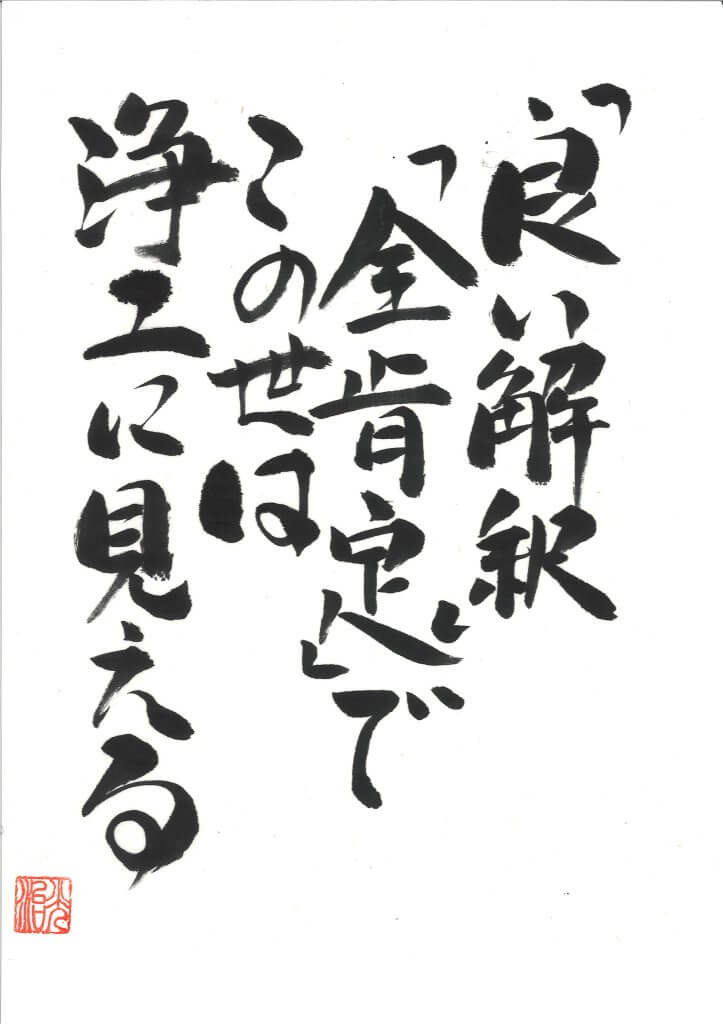 「良い解釈」
「全肯定」で
この世は
浄土に見える